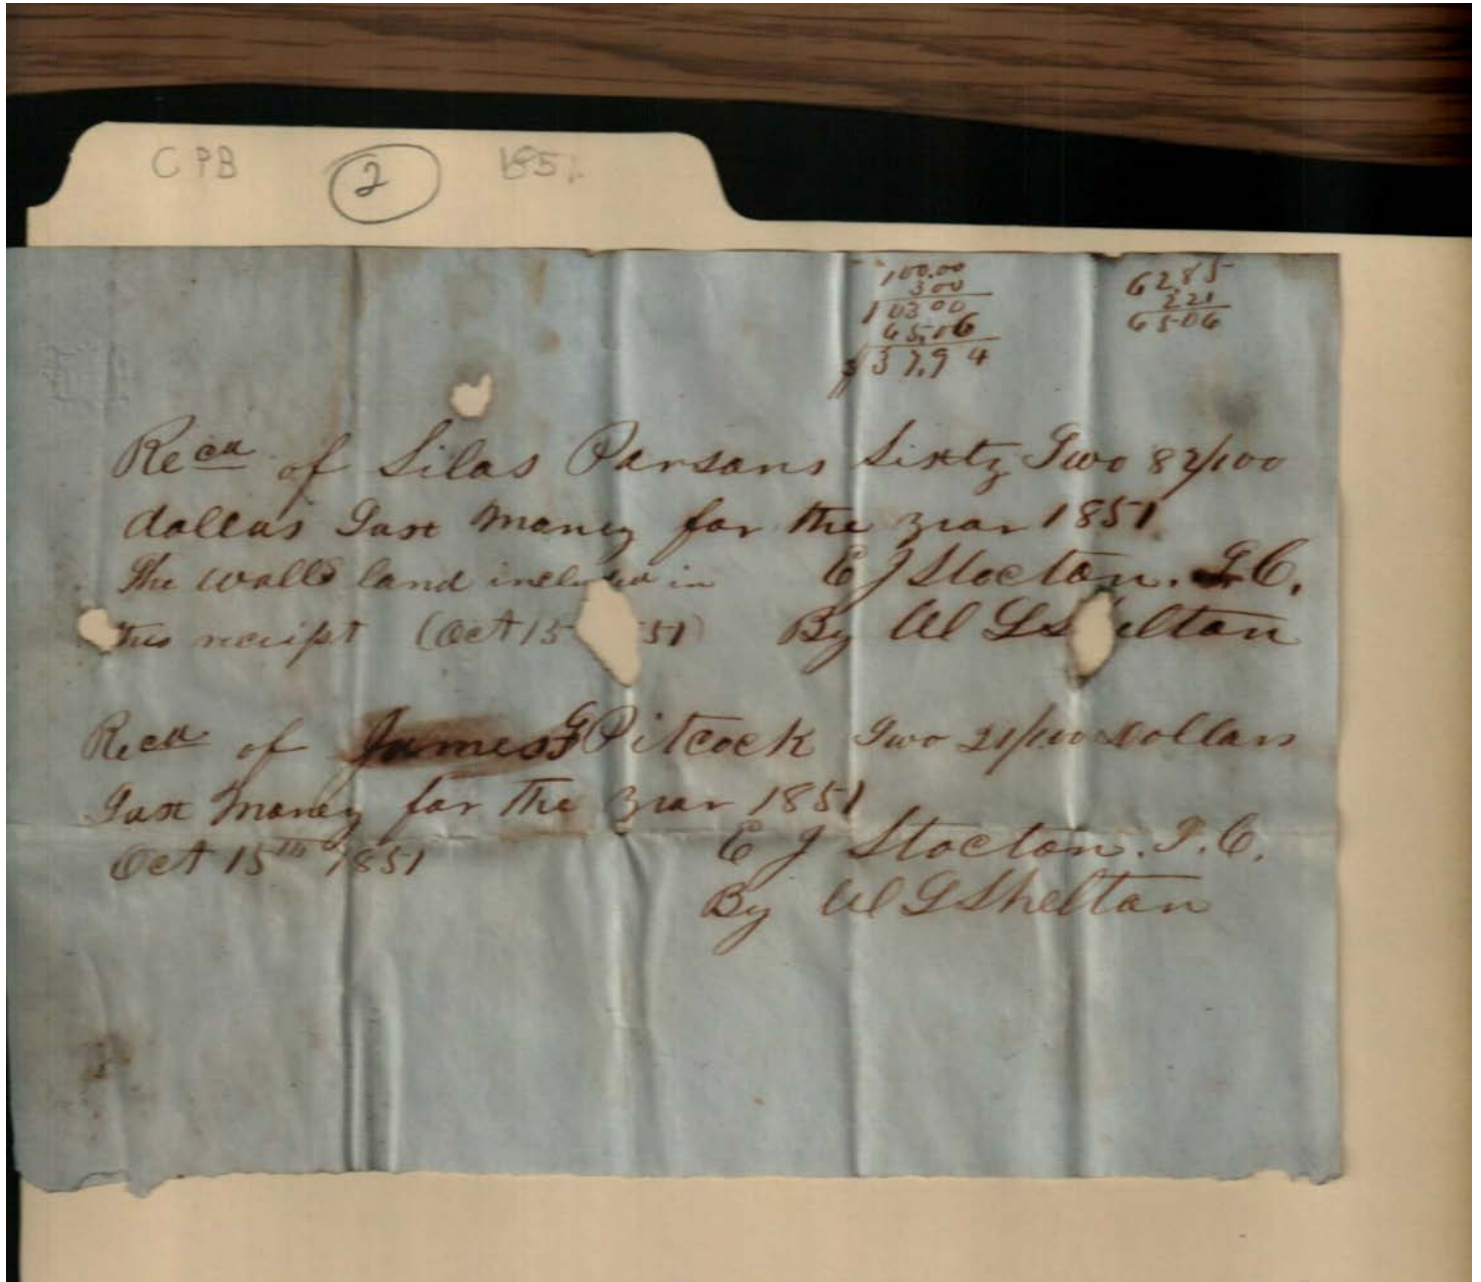 CPB 2 1851
100.00
300
10300
65.06
$37.94
62.85
221
6506
Recd of Silas Parsons Sixty Two 82/100
dollars Tax Money for the year 1851
The walld land included in E J Stocton. T.C.
this receipt (Oct 15 51) By Wl G Shelton
Recd of James G Pitcock Two 21/100 dollars
Tax Money for the year 1851
Oct 15th 1851 E J Stocton. T.C.
By Wl G Shelton